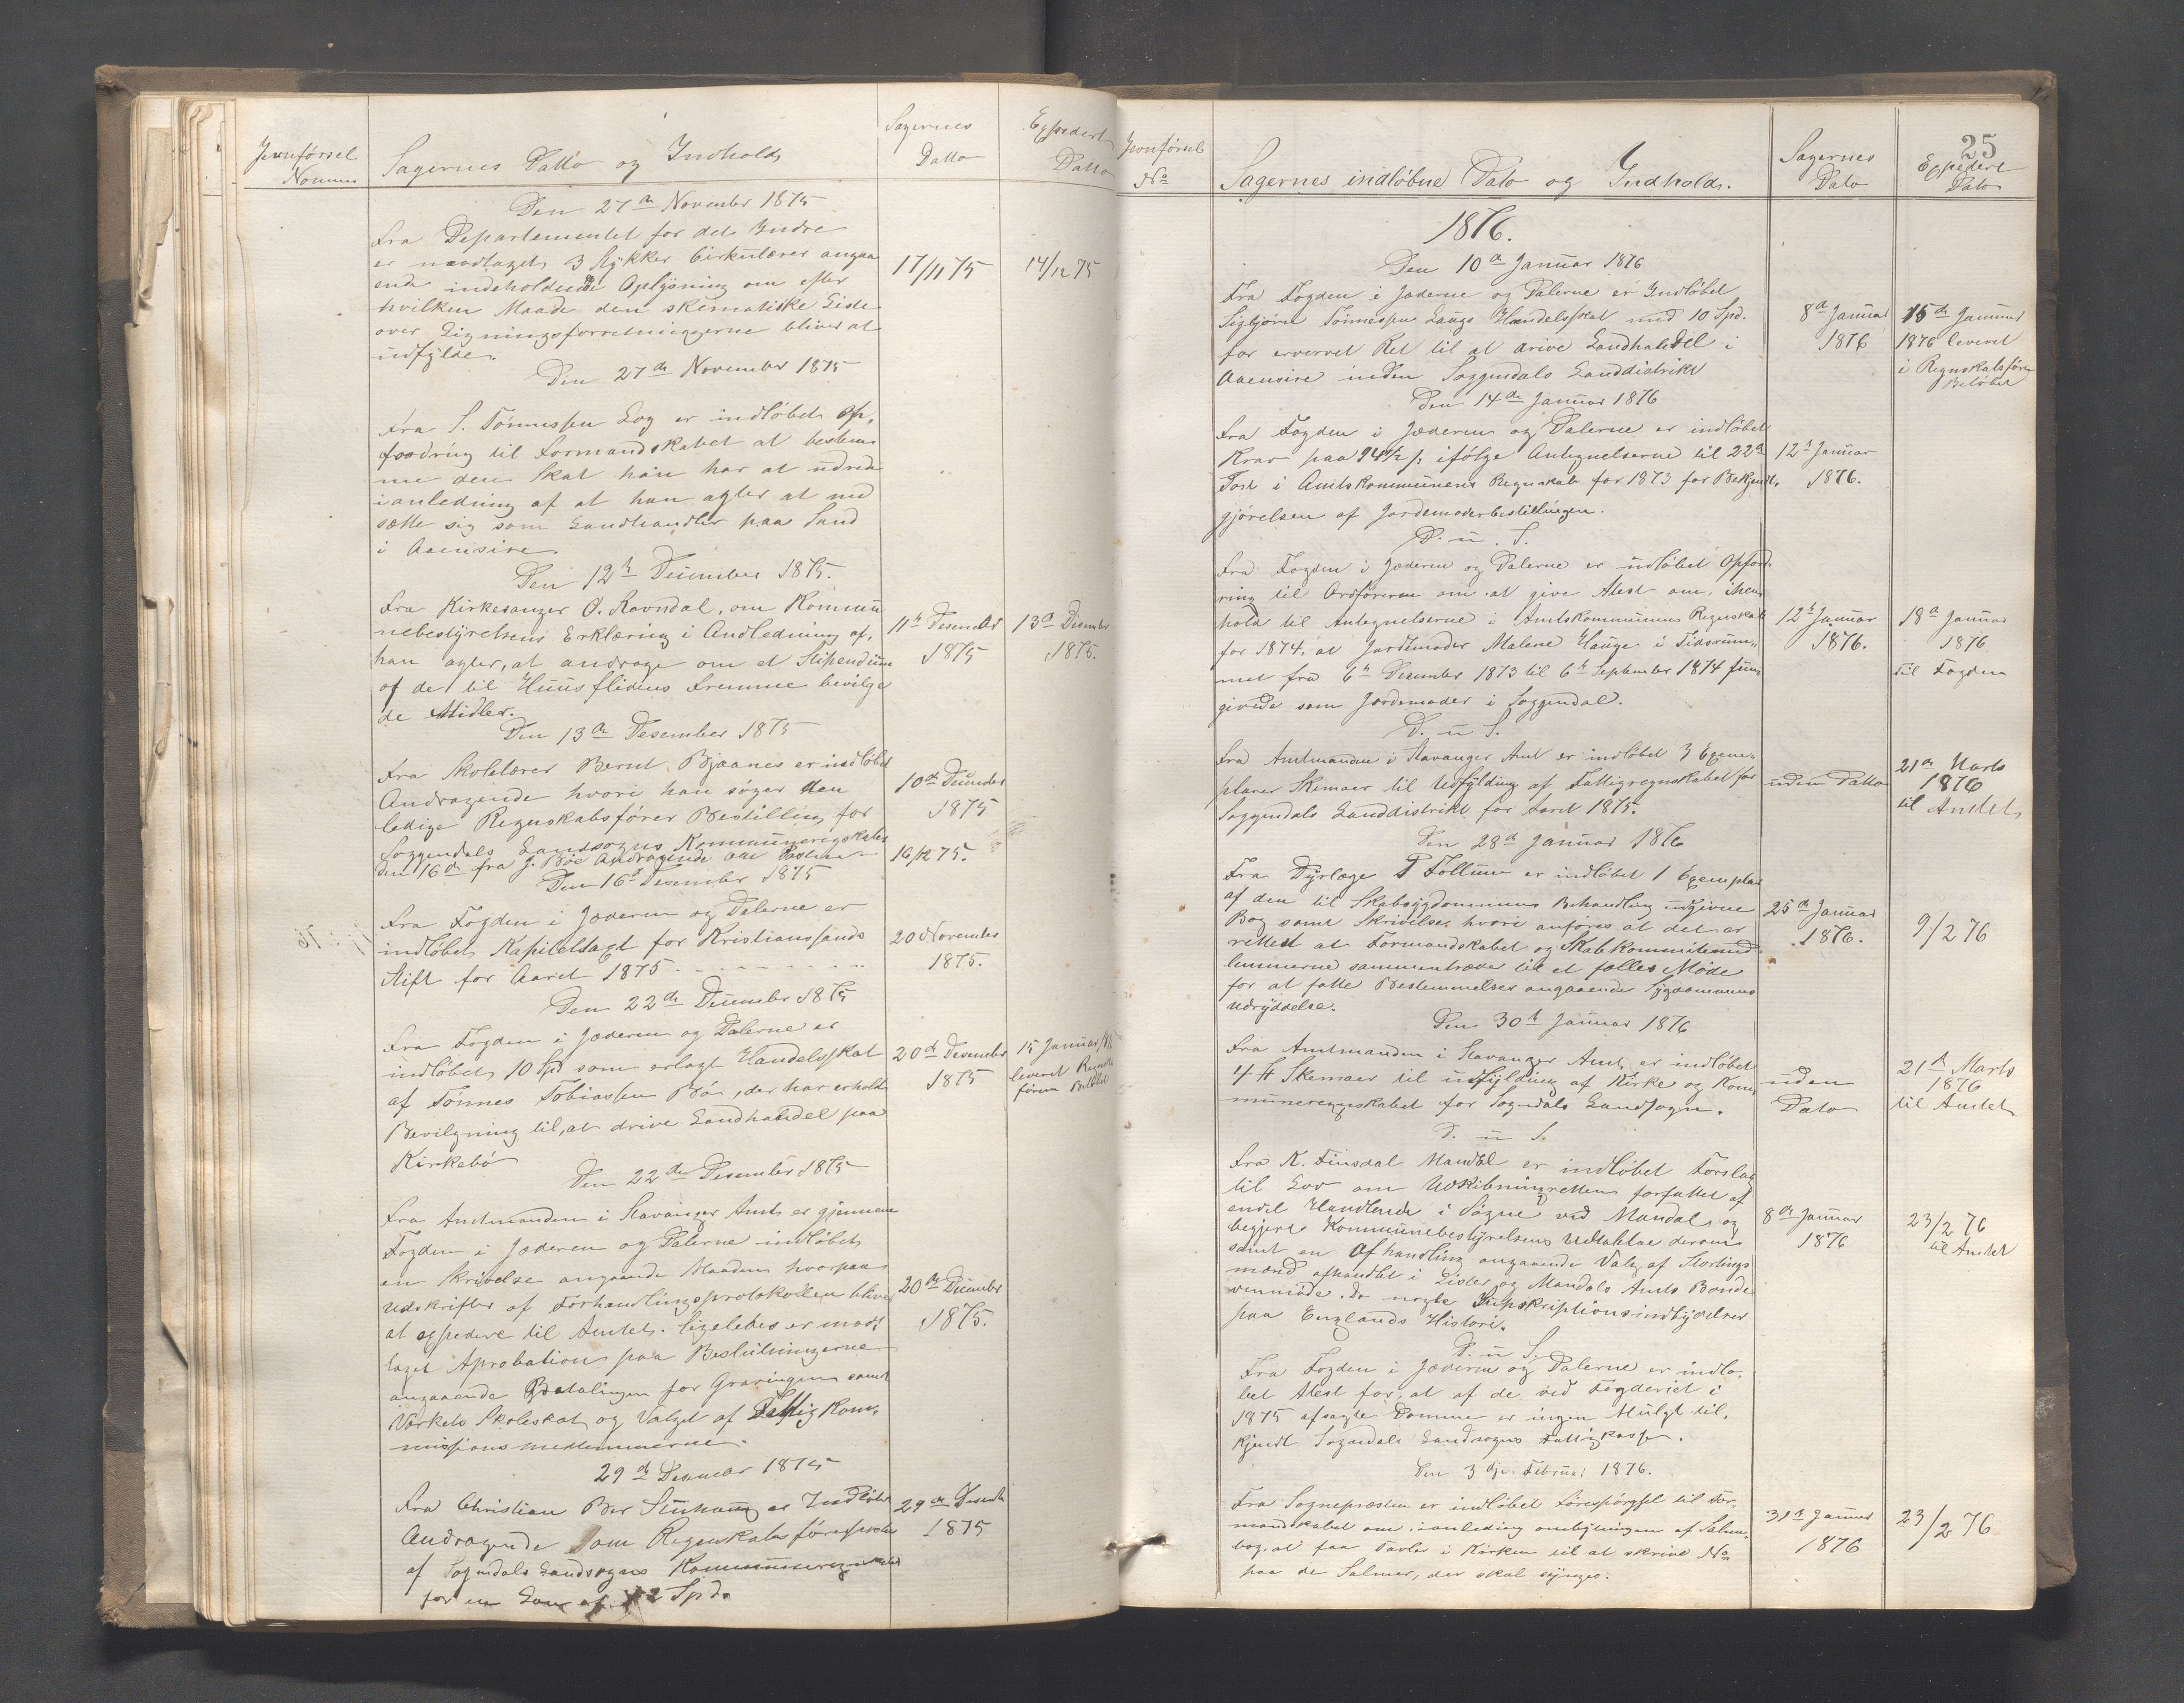 Jevnförsel
Nommer
Sagernes Datto og Indhold
Sagernes
Datto
Expedert
Datto
Den 27de November 1875
Fra Departementet for det Indre
er modtaget 3 Stykker Cirkulærer angaa
ende indeholdende Oplysning om efter
hvilken Maade den skematiske Liste
over Ligningsforretningerne bliver at
udfylde.
17/11 75
14/12 75
Den 27de November 1875
Fra S. Tönnessen Log er indløbet Op,
fordring til Formandskabet at bestem
me den Skat han har at udrede
i anledning af at han agter at ned
sætte sig som Landhandler paa Sand
i Aaensire.
Den 12te Desember 1875.
Fra Kirkesanger O. Ravndal, om Kommu
nebestyrelsens Erklæring i Andledning af,
han agter, at andrage om et Stipendium
af de til Huusflidens Fremme bevilge
de Midler.
11te Desember
1875
13de Desember
1875.
Den 13de Desember 1875
Fra Skolelærer Bernt Bjaanes er indløbet
Andragende hvori han søger den
ledige Regnskabsfører Bestilling for
Soggendals Landsogns Kommuneregnskaber
10de Desember
1875
Den 16de fra J. Böe Andragende om Posten
16/12 75.
Den 16de Desember 1875
Fra Fogden i Jæderen og Dalerne er
indløbet Kapiteltaxt for Kristianssands
Stift for Aaret 1875
20 November
1875.
Den 22de Desember 1875
Fra Fogden i Jæderen og Dalerne er
indløbet 10 Spd som erlagt Handelsskat
af Tönnes Tobiassen Bö, der har erholdt
Bevilgning til, at drive Landhandel paa
Kirkebö
20de Desember
1875
15 Januar 1876
leveret Regnska
føren Beløbet
Den 22de Desember 1875
Fra Amtmanden i Stavanger Amt er gjennem
Fogden i Jæderen og Dalerne indløbet
en Skrivelse angaaende Maaden hvorpaa
Udskrifter af Forhandlingsprotokollen bliver
at expedere til Amtet. ligeledes er mod,
taget Aprobation paa Beslutningerne
angaaende Betalingen for Gravingen samt
Værkets Skoleskat og Valget af Fattig Kom,
missionsmedlemmerne.
20de Desember
1875.
29de Desember 1875
Fra Christian Ber Stuhaug er Indløbet
Andragende som Regnskabsfører
af Sogndals Landsogns Kommuneregnskaber
for en Løn af 12 Spd.
29de Desemb
1875
25
Jevnförsel
No
Sagernes indløbne Dato og Indhold.
Sagernes
Dato
Expedert
Dato
1876.
Den 10de Januar 1876
Fra Fogden i Jæderne og Dalerne er Indløbet
Sigbjörn Tönnessen Laugs Handelsskat med 10 Spd.
for ervervet Ret til at drive Landhandel i
Aaensire inden Soggendals Landdistrikt
8de Januar
1876
15de Januar
1876 leveret
i Regnskabsføre
Beløbet
Den 14de Januar 1876
Fra Fogden i Jæderen og Dalerne er indløbet
Krav paa 94 1/2 s. ifølge Antegnelserne til 22de
Post i Amtskommunens Regnskab for 1873 for Bekjendt,
gjörelsen af Jordemoderbestillingen.
12te Januar
1876.
D. u. S.
Fra Fogden i Jæderen og Dalerne er indløbet Opford
ring til Ordføreren om at give Atest om, i hen,
hold til Antegnelserne i Amtskommunens Regnskab
for 1874, at Jordemoder Malene Hauge i Tidsrum,,
met fra 6te Desember 1873 til 6te September 1874 fun,
gerede som Jordemoder i Soggendal.
12te Januar
1876.
18de Januar
1876
til Fogden
D. u S.
Fra Amtmanden i Stavanger Amt er indløbet 3 Exem,
plarer Skemaer til Udfylding af Fattigregnskabet for
Soggendals Landdistrikt for Aaret 1875.
uden Datto
21de Marts
1876
til Amtet
Den 28de Januar 1876
Fra Dyrlæge P Follum er indløbet 1 Exemplar
af den til Skabsygdommens Behandling udgivne
Bog samt Skrivelse hvori anføres at det er
rettest at Formandskabet og Skabkommitemed
lemmerne sammentræder til et fælles Møde
for at fatte Bestemmelser angaaende Sygdommens
udryddelse.
25de Januar
1876.
9/2 76
Den 30te Januar 1876
Fra Amtmanden i Stavanger Amt er indløbet
4 # Skemaer til udfylding af Kirke og Kom,
muneregnskabet for Sogndals Landsogn.
uden
Dato
21de Marts
1876
til Amtet
D. u S.
Fra K. Finsdal Mandal er indløbet Forslag
til Lov om Udskibningsretten forfattet af
endel Handlende i Søgne ved Mandal og
begjert Kommunebestyrelsens Udtalelse derom
samt en Afhandling angaaende Valg af Stortings
mænd afhandlet i Lister og Mandals Amts Bonde
venmöde. Do nogle Supskriptionsindbydelser
paa Englands Histori.
8de Januar
1876
23/2 76
til Amtet
D. u S.
Fra Fogden i Jæderen og Dalerne er indlø,
bet Atest for, at af de ved Fogderiet i
1875 afsagte Domme er ingen Mulgt til,
kjendt Sogndals Landsogns Fattigkasse.
Den 3dje Februar 1876.
Fra Sognepræsten er indløbet Forespörgsel til For,
mandskabet om, i anledning ombytningen af Salme
bog, at faa Tavler i Kirken til at skrive No
paa de Salmer, der skal synges.
31te Januar
1876
23/2 76